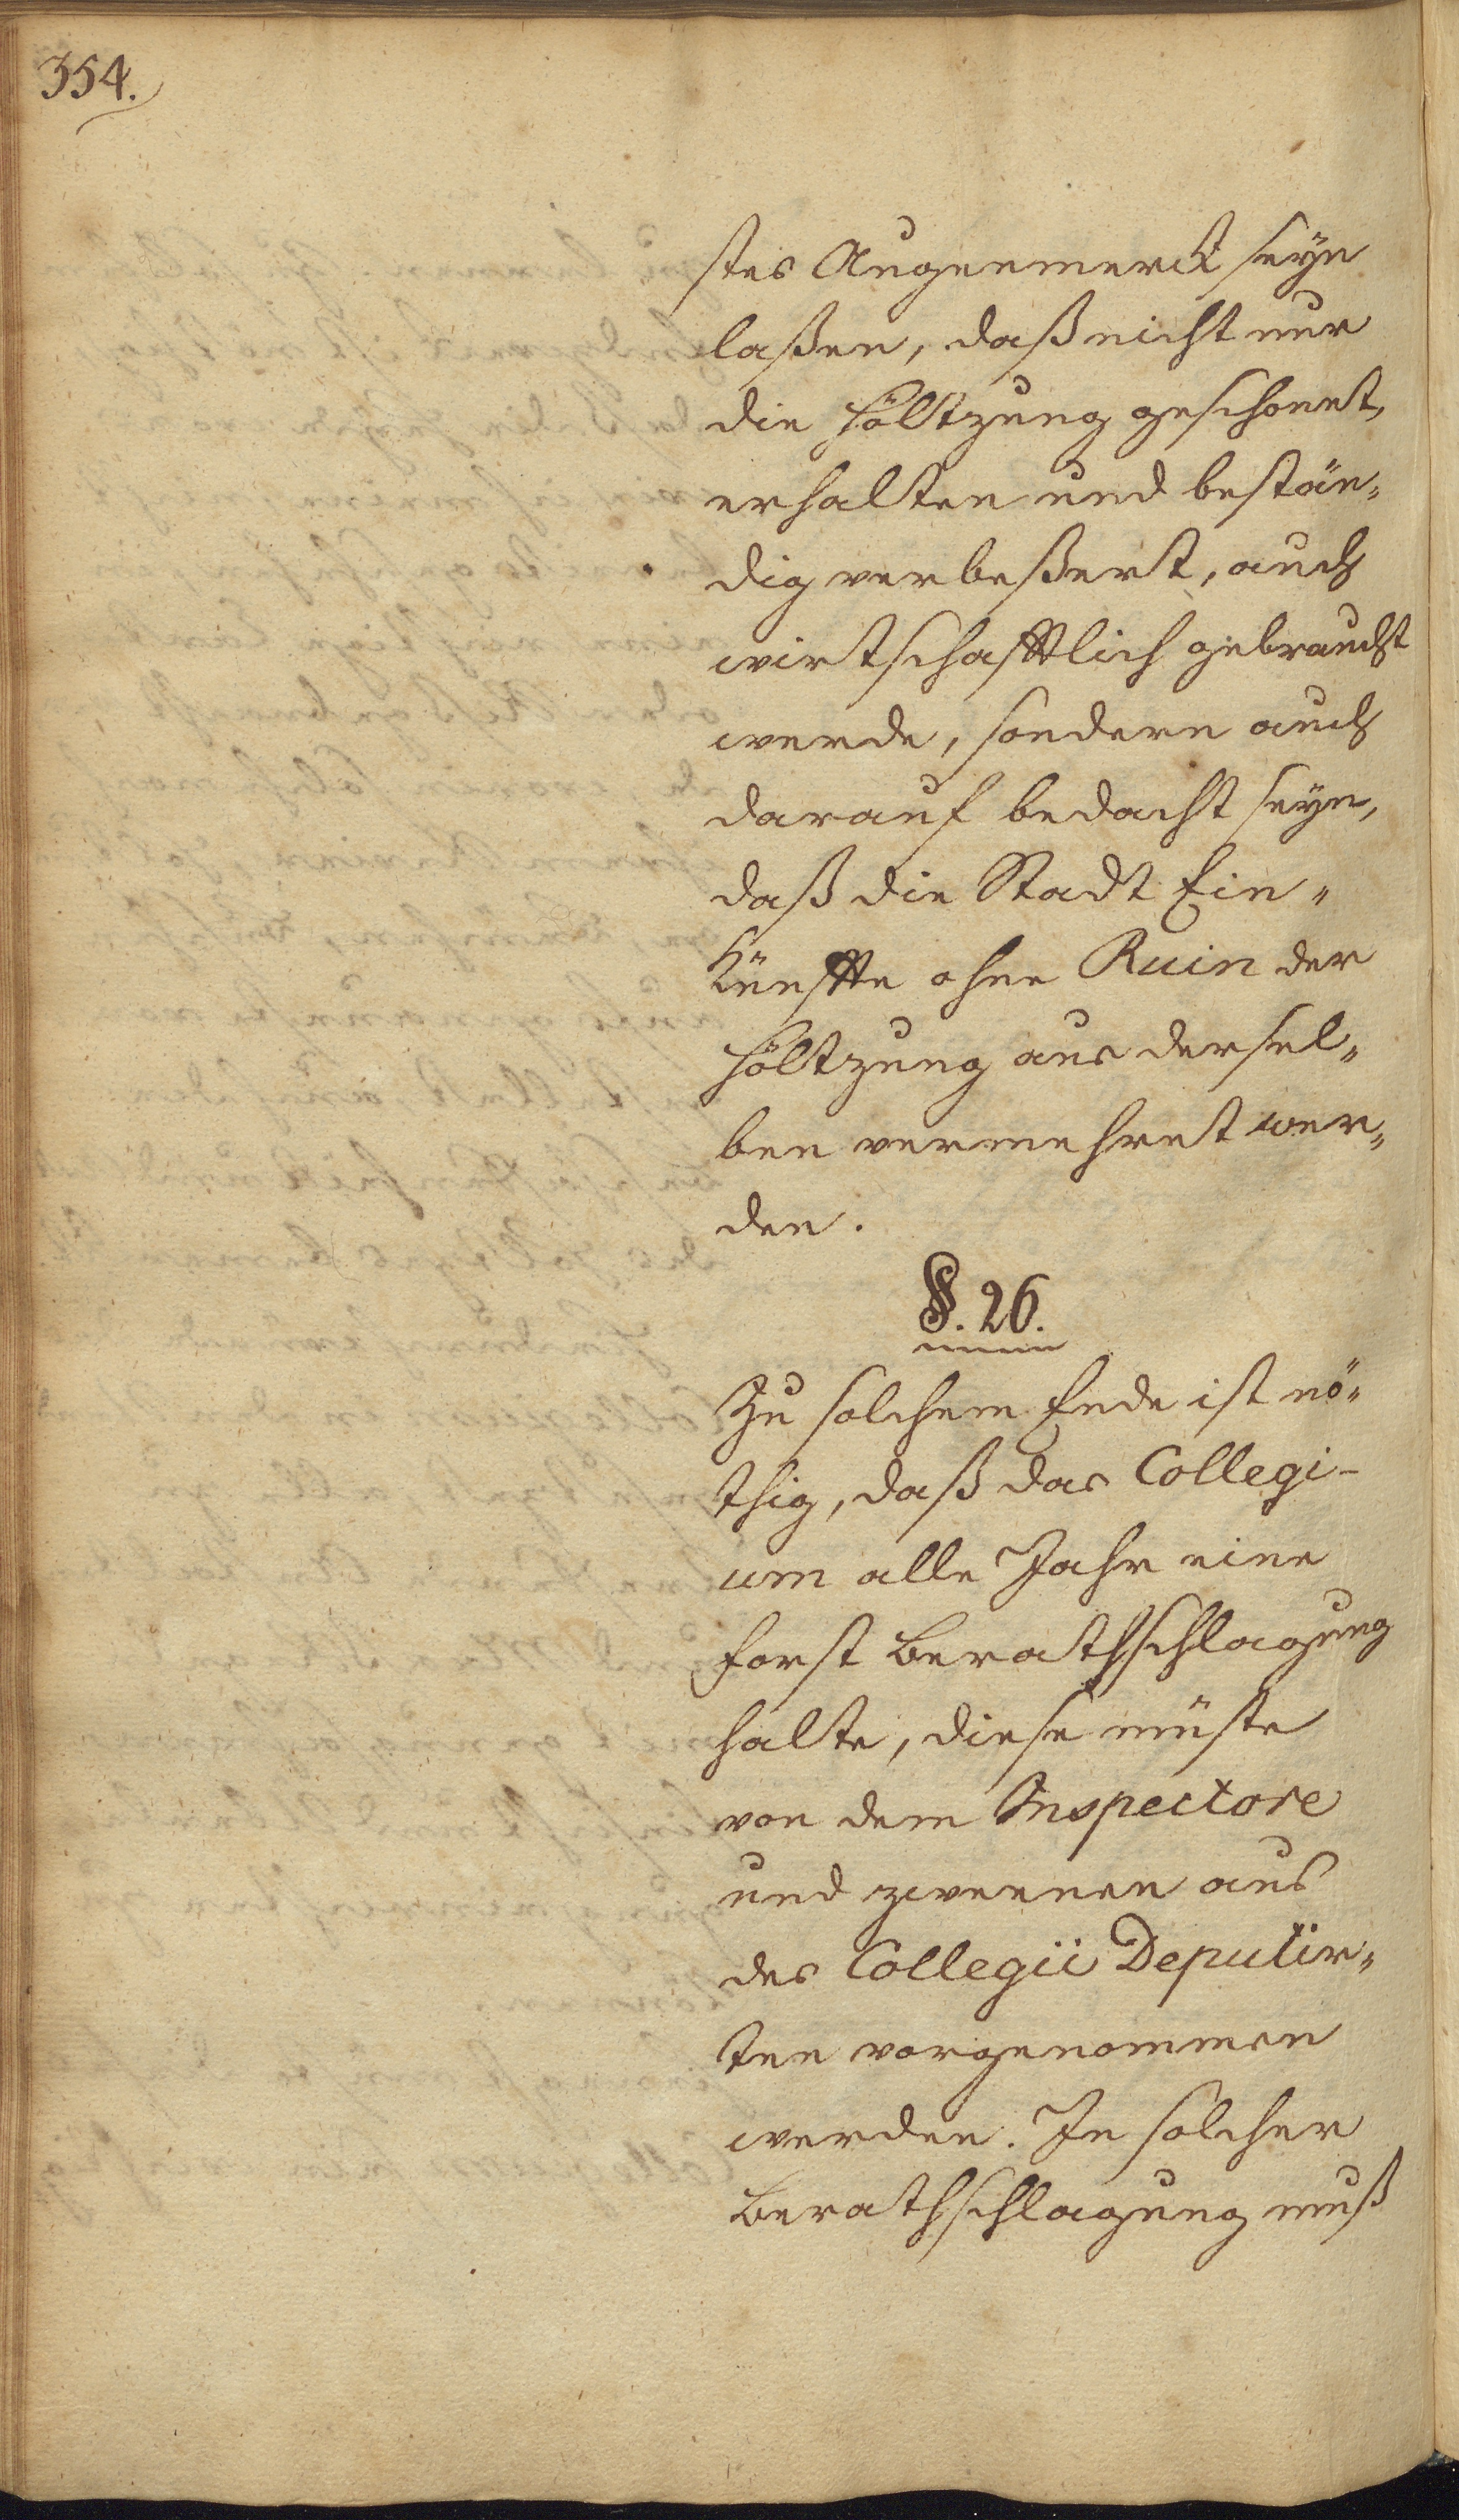 354.
stes Augenmerck seyn
laßen, daß nicht nur
die Höltzung geschonet,
erhalten und bestän„
dig verbeßert, auch
wirtschafftlich gebraucht
werde, sondern auch
darauf bedacht seyn,
daß die Stadt Ein„
künffte ohne Ruin der
Höltzung aus dersel„
ben vermehret wer„
den.
§. 26.
Zu solchem Ende ist nö„
thig, daß das Collegi-
um alle Jahr eine
Forst Berathschlagung
halte, diese müste
von dem Inspectore
und zweenen aus
des Collegii Deputir„
ten vorgenommen
werden. In solcher
Berathschlagung muß